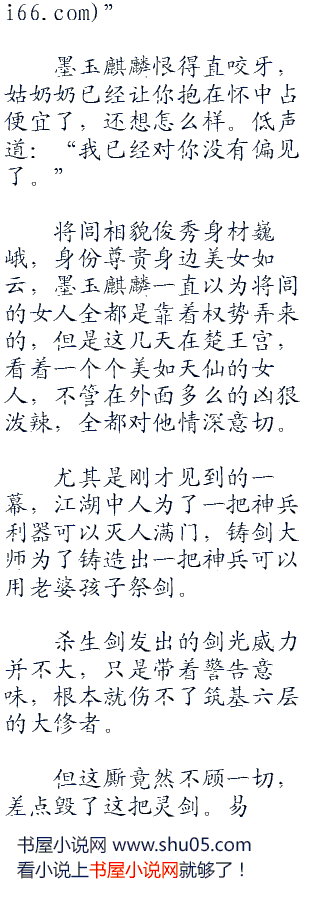 i66.com)”
墨玉麒麟恨得直咬牙，
姑奶奶已经让你抱在怀中占
便宜了，还想怎么样。低声
道：“我已经对你没有偏见
了。”
将闾相貌俊秀身材巍
峨，身份尊贵身边美女如
云，墨玉麒麟一直以为将闾
的女人全都是靠着权势弄来
的，但是这几天在楚王宫，
看着一个个美如天仙的女
人，不管在外面多么的凶狠
泼辣，全都对他情深意切。
尤其是刚才见到的一
幕，江湖中人为了一把神兵
利器可以灭人满门，铸剑大
师为了铸造出一把神兵可以
用老婆孩子祭剑。
杀生剑发出的剑光威力
并不大，只是带着警告意
味，根本就伤不了筑基六层
的大修者。
但这厮竟然不顾一切，
差点毁了这把灵剑。易
书屋小说网 www.shu05.com
看小说上书屋小说网就够了！